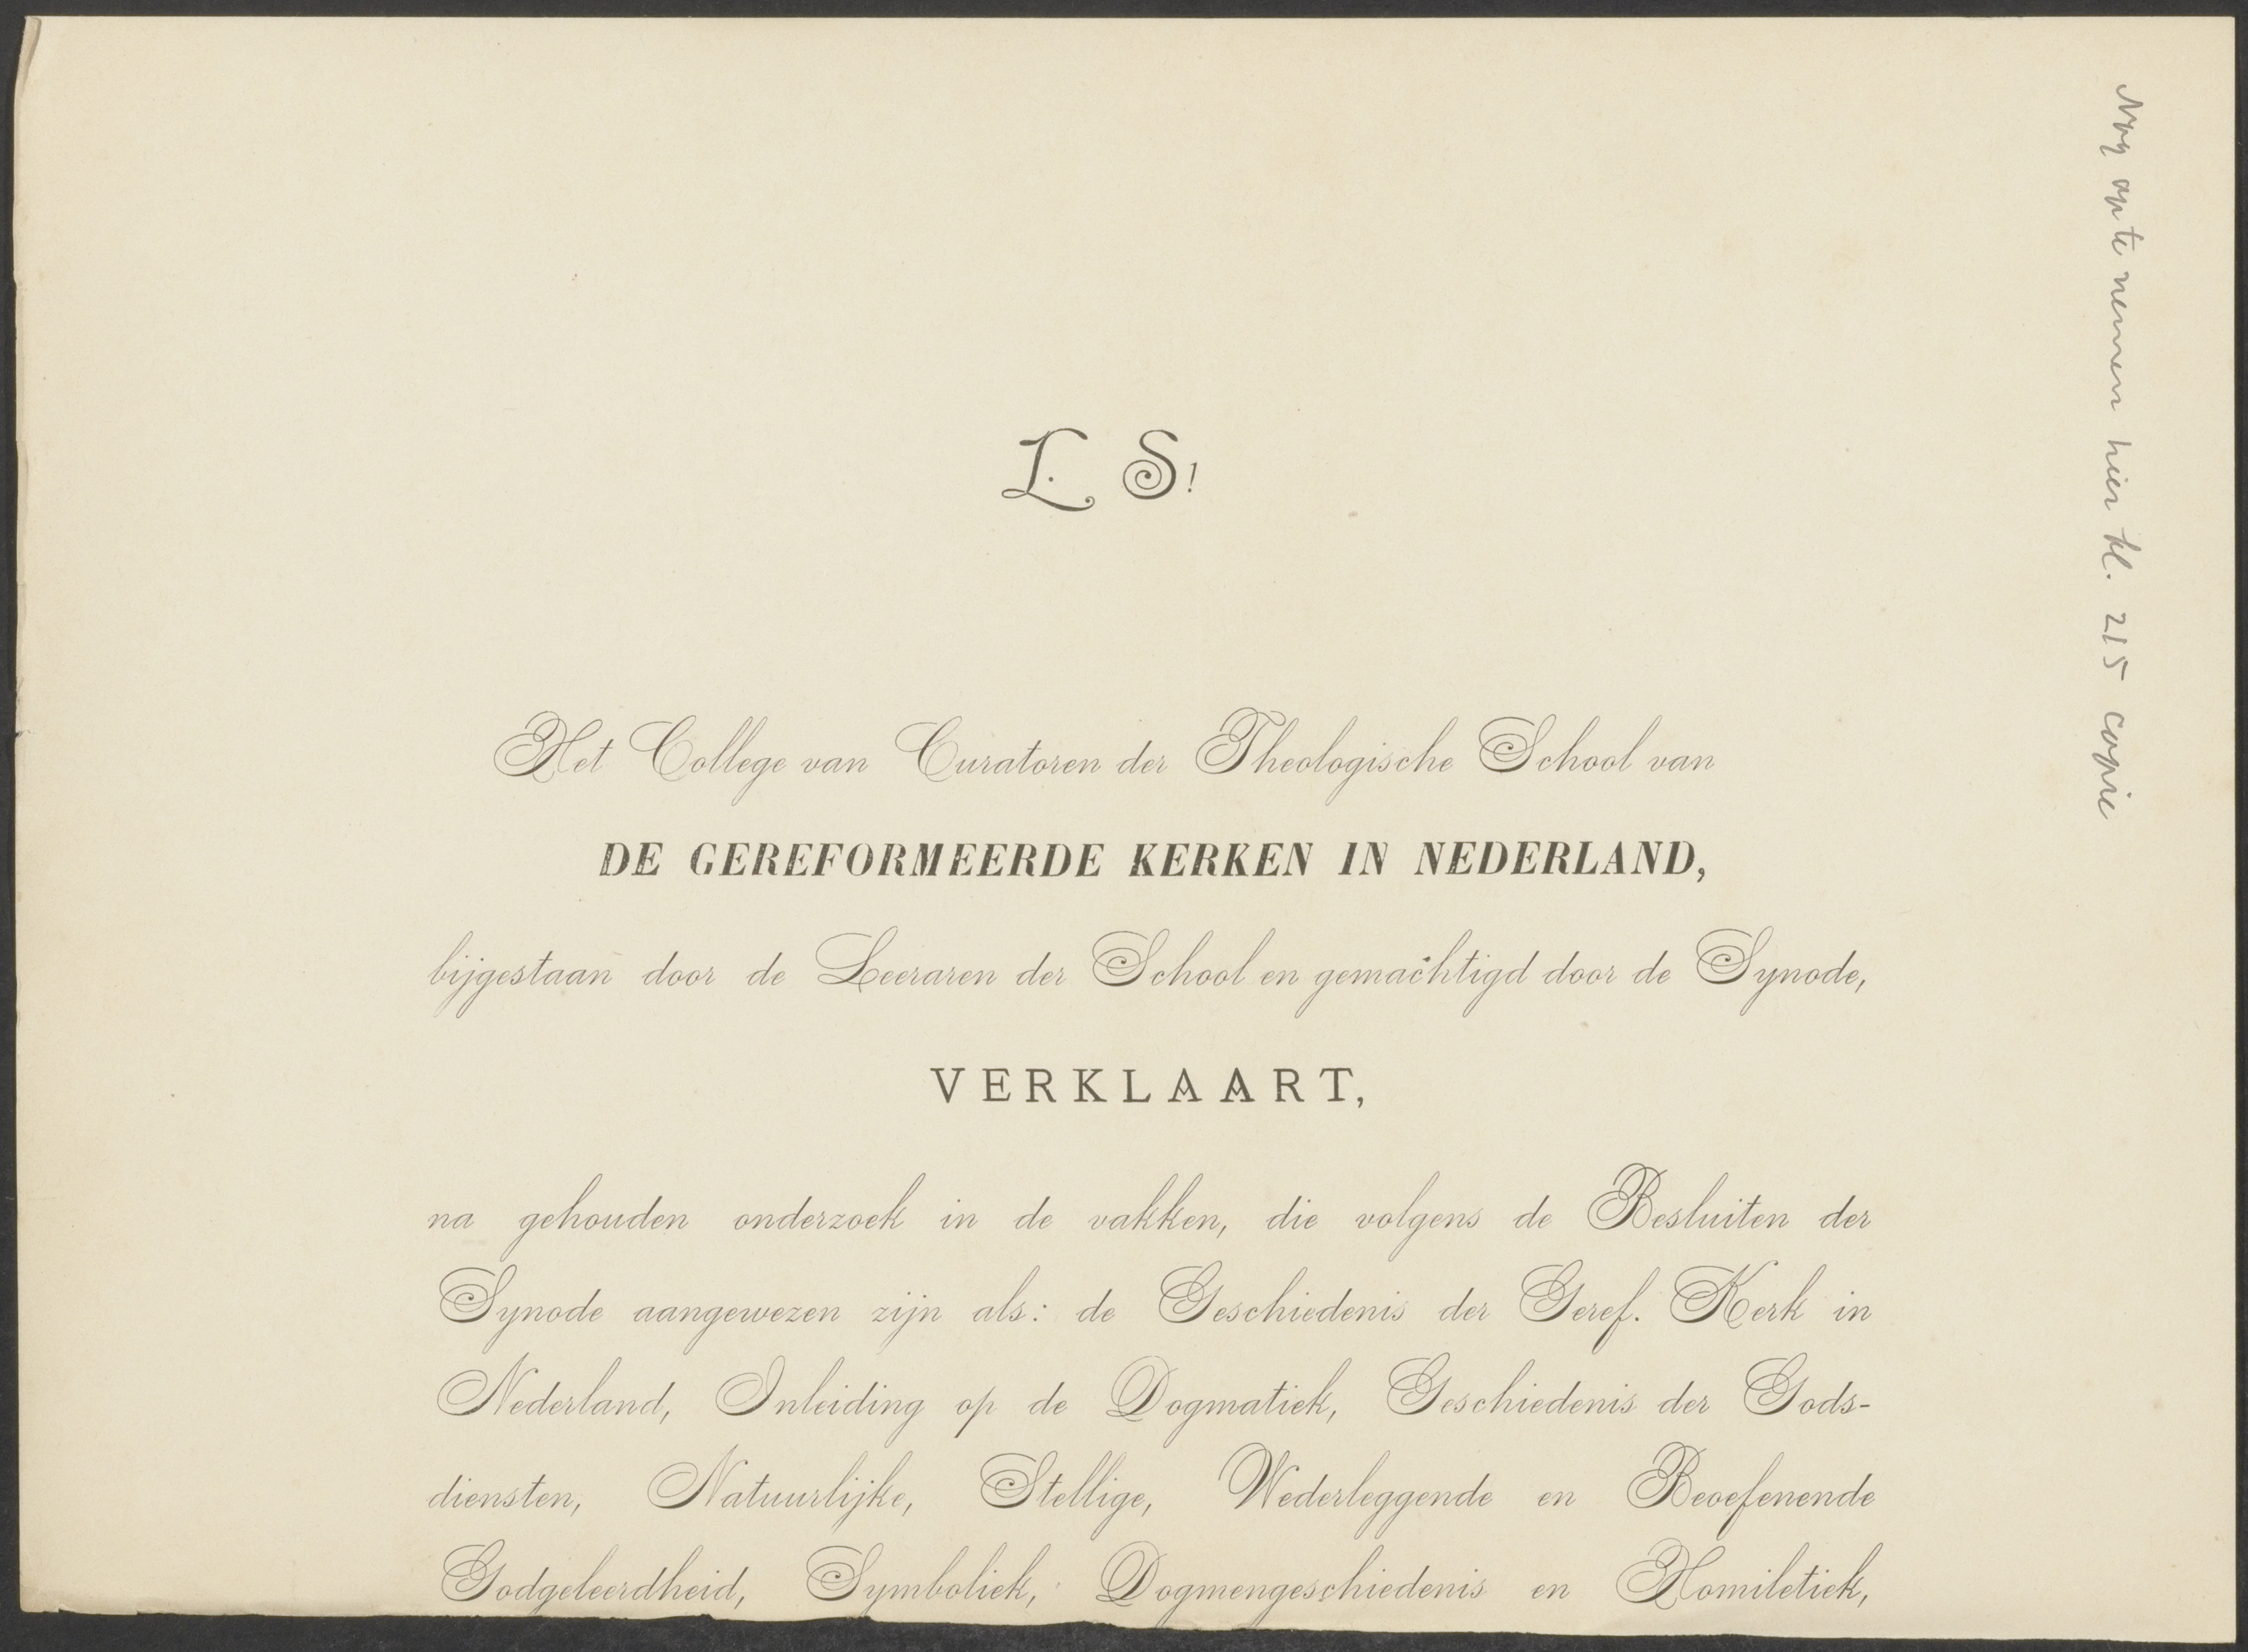 L. S!
Het College van Curatoren der Theologische School van
DE GEREFORMEERDE KERKEN IN NEDERLAND,
bijgestaan door de Leeraren der School en gemachtigd door de Synode,
VERKLAART,
na gehouden onderzoek in de vakken, die volgens de Besluiten der
Synode aangewezen zijn als: de Geschiedenis der Geref. Kerk in
Nederland, Inleiding op de Dogmatiek, Geschiedenis der Gods-
diensten, Natuurlijke, Stellige, Wederleggende en Beoefenende
Godgeleerdheid, Symboliek, Dogmengeschiedenis en Homiletiek,
Nog op te nemen hier bl. 215 copie